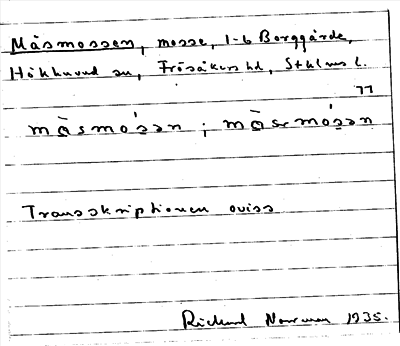 Måsmossen, mosse, 1-6 Borggärde,
Hökhuvud sn, Frösåkers hd, Sthlms l.
77
mɑ̀smósən ; mɑ̀səmósən
Transskriptionen oviss
Rickard 1935.